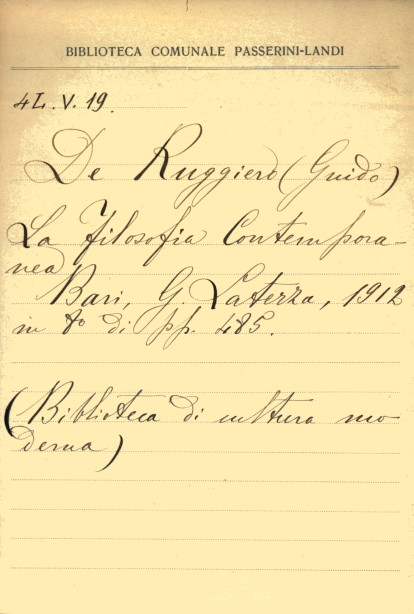 BIBLIOTECA COMUNALE PASSERINI-LANDI
4L. V. 19.
De Ruggiero (Guido)
La Filosofia Contempora-
nea
Bari, G. Laterza, 1912
in 8° di pp. 485.
(Biblioteca di cultura mo
derna)